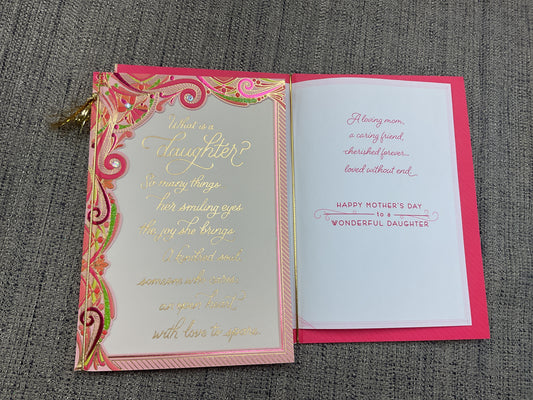 What is a
daughter?
So many things
her smiling eyes
the joy she brings
A kindred soul
someone who
an open heart
with love to spare.
A loving mom,
a caring friend,
cherished forever...
loved without end.
HAPPY MOTHER'S DAY
to a
WONDERFUL DAUGHTER